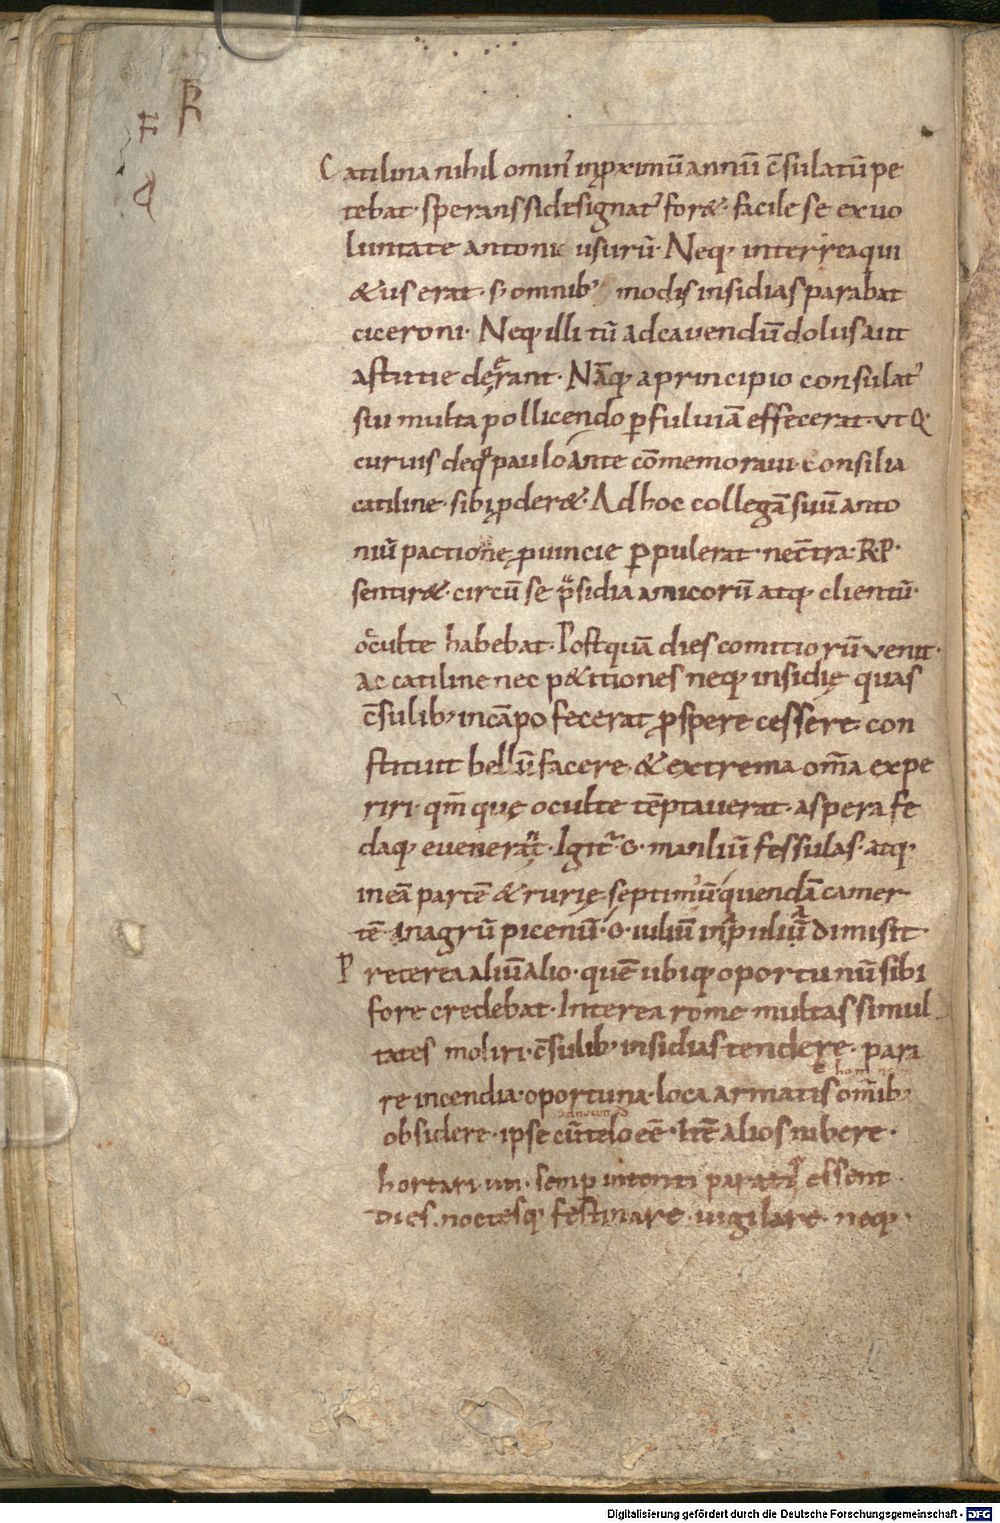 F R
q
Catilina nihil omin' inꝓximū annū c̄sulatū pe
tebat· sperans si designat' for&· facile se ex uo
luntate antonii usurū· Neq; interea qui
&us erat· s; omnib; modis insidias parabat
ciceroni· Neq; illi tū ad cavendū dolus aut
astutie deerant· Nāq; a principio consulat'
sui multa pollicendo ꝑ fuluiā effecerat· ut Q·
curius de q° paulo ante cōmemoraui· consilia
catiline· sibi ꝓder&· Ad hoc collegā suū anto
niū pactione ꝓuincie ꝑpulerat· ne c̄tra· R·P·
sentir&· circū se p̄sidia amicorū atq; clientū·
occulte habebat· Postquā dies comitiorū venit·
ac catiline nec p&itiones neq; insidię quas
c̄sulib; in cāpo fecerat ꝓspere cessere· con
stituit bellū facere· & extrema om̄a expe
riri· qm̄ que oculte tēptauerat· aspera fe
daq; evenerant· Igit' G· manliū fessulas· atq;
in eā partē &rurię septimiū quendā camer
tē in agrū picenū· G· iuliū in apuliā dimisit·
Preterea aliū alio· quē ubiq; oportunū sibi
fore credebat· Interea rome multas simul
tates moliri· c̄sulib; insidias tendere· para
re incendia· oportuna· loca armatis om̄ib;
obsidere· ipse cū telo eē· Itē alios iubere·
hortari· uti· semp intenti paratiq; essent·
Dies· noctesq; festinare· uigilare· neq;
Digitalisierung gefördert durch die Deutsche Forschungsgemeinschaft - DFG